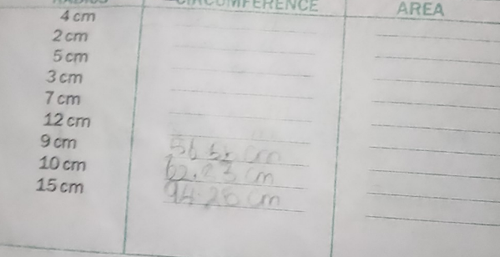 RADIUS CIRCUMFERENCE AREA
4 cm
2 cm
5 cm
3 cm
7 cm
12 cm
9 cm cm
10 cm cm
15 cm 94.25 cm